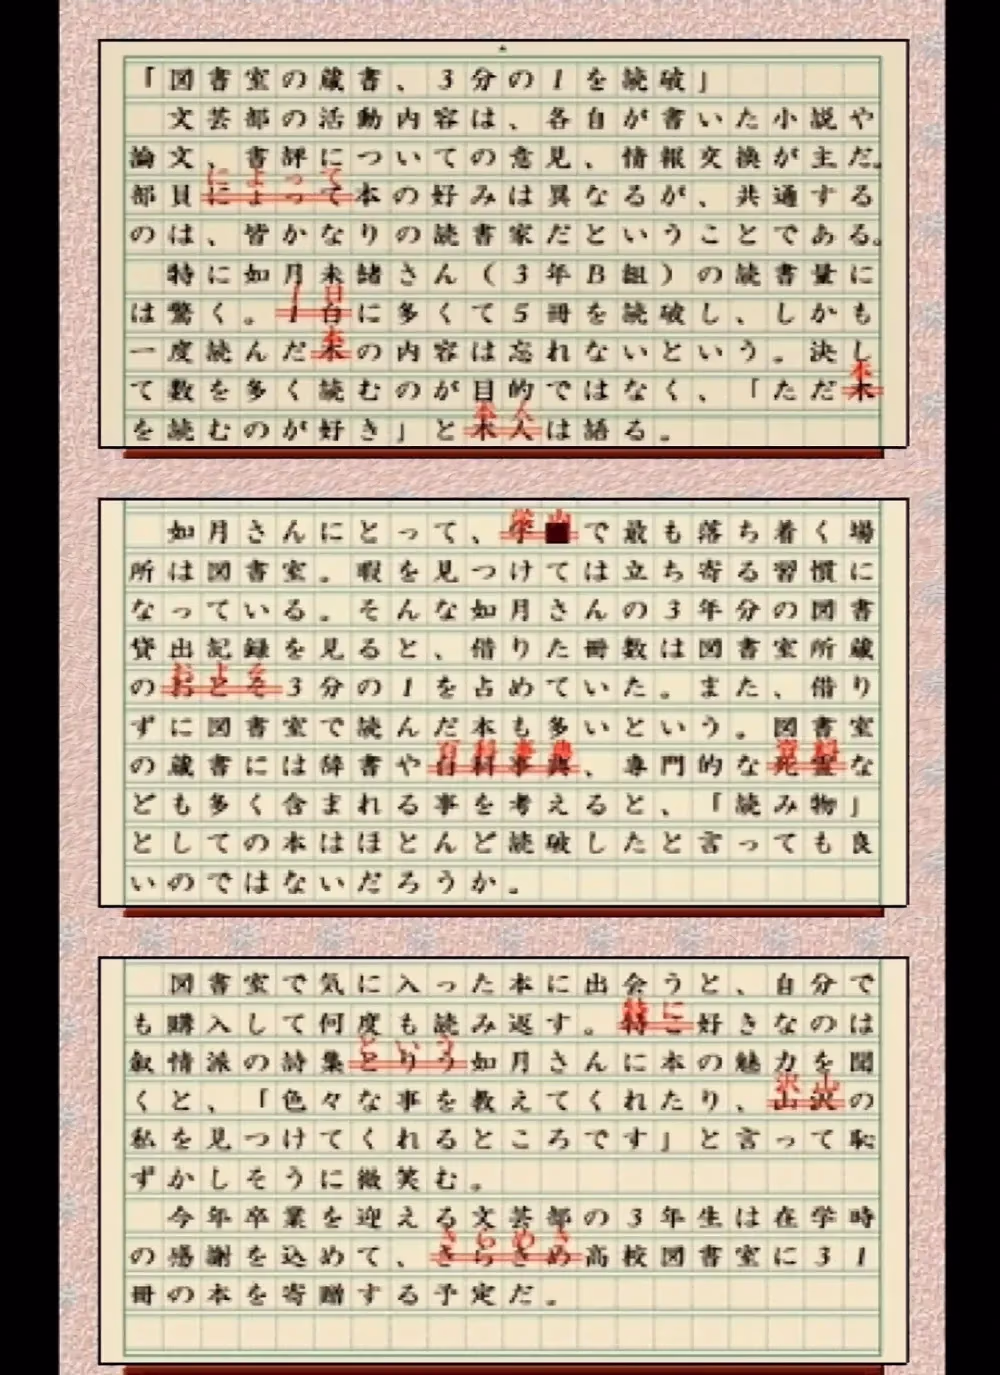 「図書室の蔵書、3分の1を読破」
文芸部の活動内容は、各自が書いた小説や
論文、書評についての意見、情報交換が主だ。
によって
部員にょって本の好みは異なるが、共通する
のは、皆かなりの読書家だということである。
特に如月未緒さん(3年B組)の読書量に
1日
は驚く。1白に多くて5冊を読破し、しかも
本
一度読んだ木の内容は忘れないという。決し
本
て数を多く読むのが目的ではなく、「ただ木
本人
を読むのが好き」と木人は語る。
学内
如月さんにとって、学■で最も落ち着く場
所は図書室。暇を見つけては立ち寄る習慣に
なっている。そんな如月さんの3年分の図書
貸出記録を見ると、借りた冊数は図書室所蔵
およそ
のおとそ3分の1を占めていた。また、借り
ずに図書室で読んだ本も多いという。図書室
百科事典 資料
の蔵書には辞書や科事典、専門的な死霊な
ども多く含まれる事を考えると、「読み物」
としての本はほとんど読破したと言っても良
いのではないだろうか。
図書室で気に入った本に出会うと、自分で
特に
も購入して何度も読み返す。特こ好きなのは
という
叙情派の詩集とりう如月さんに本の魅力を聞
沢山
くと、「色々な事を教えてくれたり、山沢の
私を見つけてくれるところです」と言って恥
ずかしそうに微笑む。
今年卒業を迎える文芸部の3年生は在学時
きらめき
の感謝を込めて、きらきめ高校図書室に31
冊の本を寄贈する予定だ。